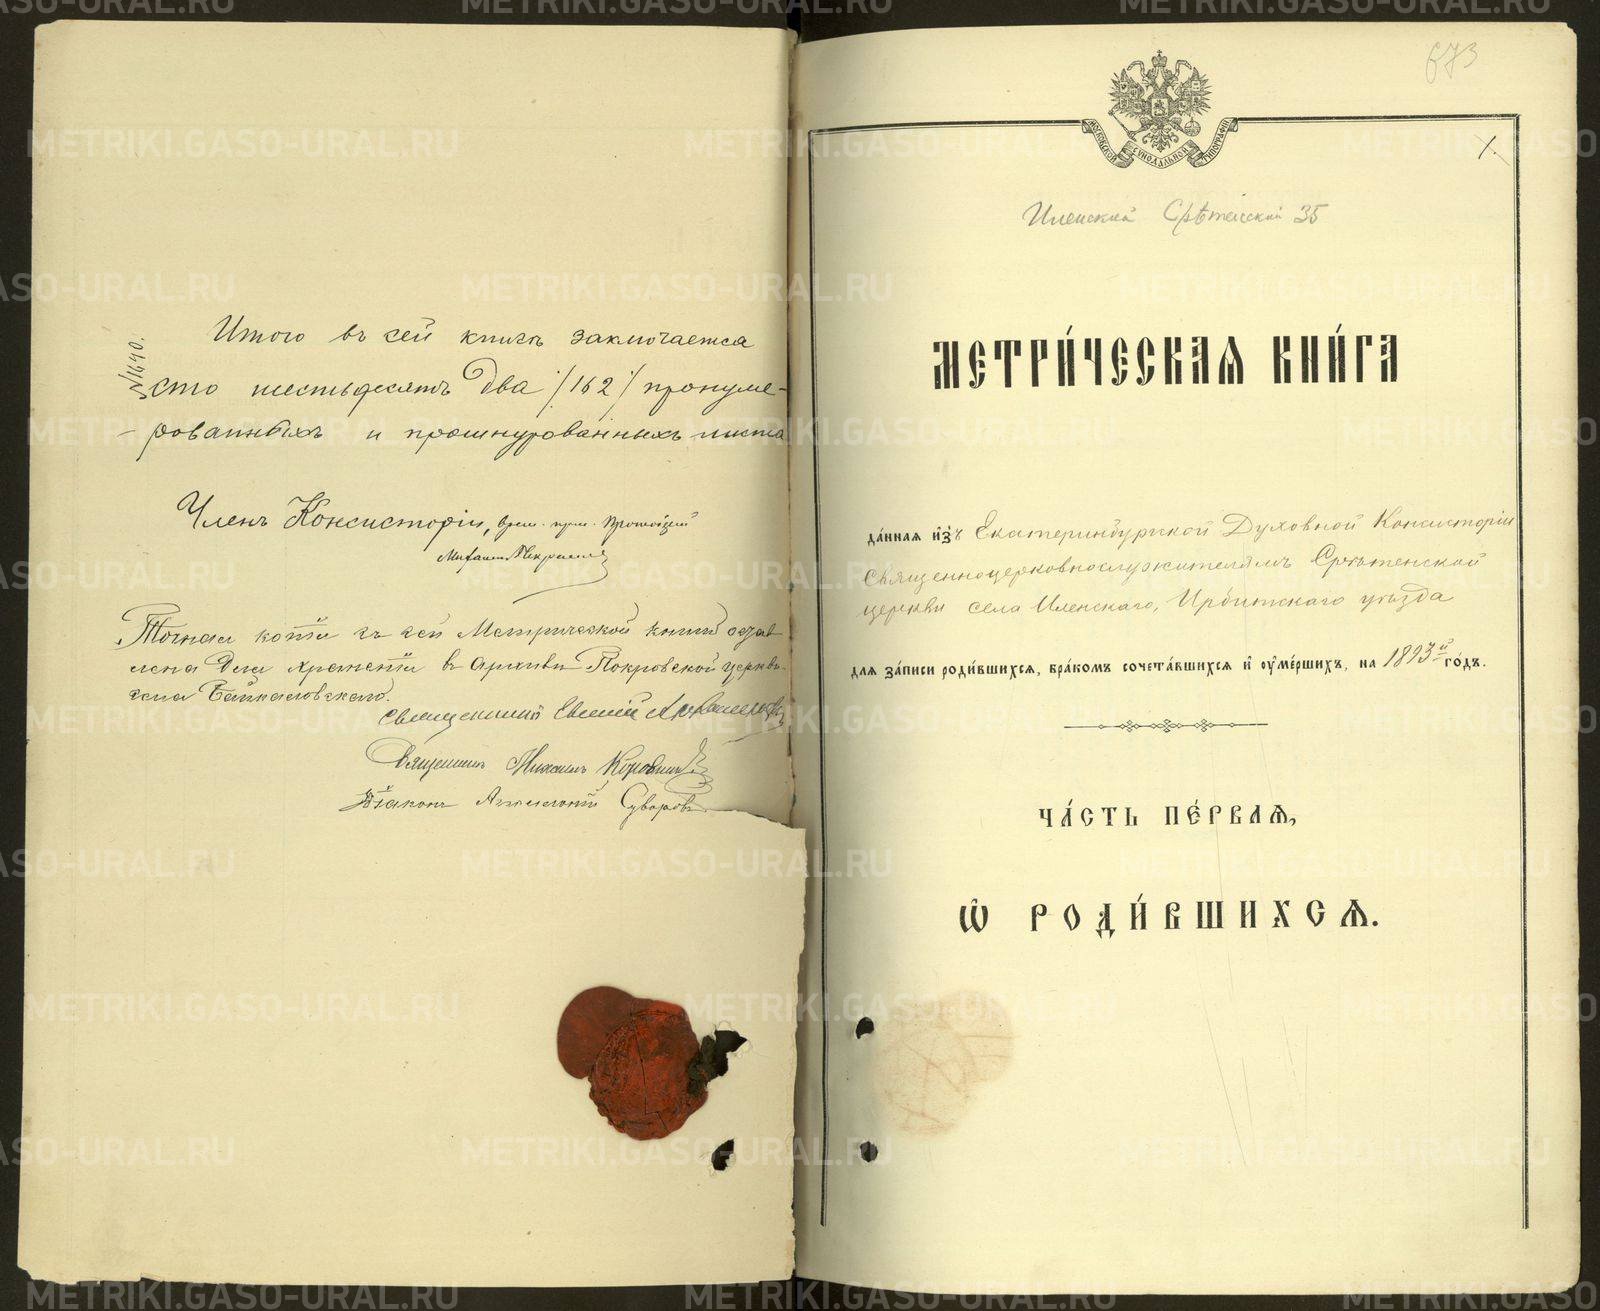 № 1640.
Итого въ сей книгѣ заключается
сто шестьдесятъ два /162/ пронуме-
рованныхъ и прошнурованныхъ листа
Членъ Консисторіи,
Михаилъ Некрасовъ
Точная копія съ сей Метрической книги остав
лена для храненія въ архивѣ Покровской церкви
села Байкаловскаго.
Священникъ Евгеній
Священникъ Михаилъ Коровинъ
Діаконъ Суворовъ
673
1.
МОСКОВСКОЙ СѴНОДАЛЬНОЙ ТИПОГРАФІИ
Иленской Срѣтенской 35
МЕТРИ́ЧЕСКАѦ КНИ́ГА
да́нная и҆зъ Екатеринбургской Духовной Консисторіи
Священноцерковнослужителямъ Срѣтенской
церкви села Иленскаго, Ирбитскаго уѣзда
для за́писи роди́вшихсѧ, бра́комъ сочета́вшихсѧ и҆ ᲂу҆ме́ршихъ, на 1893й го́дъ.
ЧА́СТЬ ПЕ́РВАѦ,
Ѡ҆ РОДИ́ВШИХСѦ.
METRIKI.GASO-URAL.RU